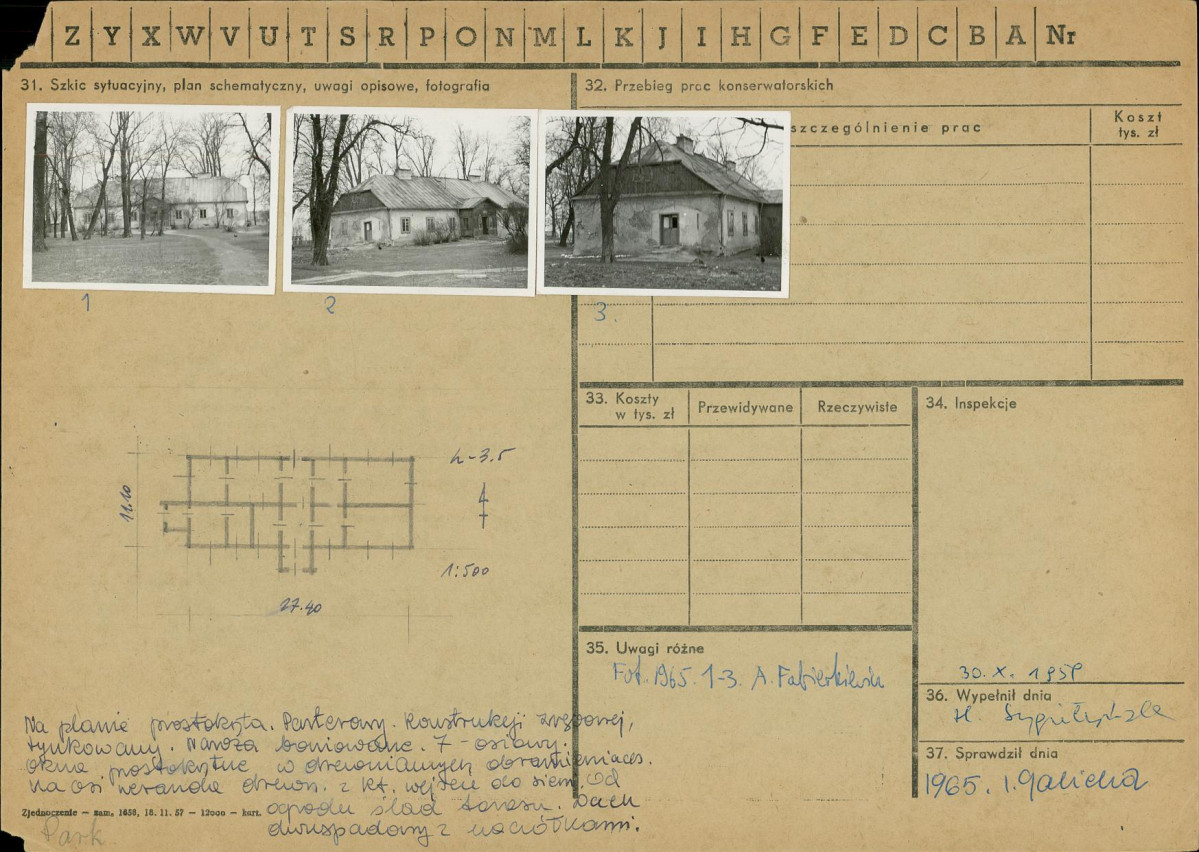 Z Y X W V U T S R P O N M L K J I H G F E D C B A Nr
31. Szkic sytuacyjny, plan schematyczny, uwagi opisowe, fotografia
32. Przebieg prac konserwatorskich
szczególnienie prac
Koszt
tys. zł
1
2
3.
33. Koszty
w tys. zł
Przewidywane
Rzeczywiste
34. Inspekcje
h-3.5
11.10
1:500
27.40
35. Uwagi różne
Fot. 1965. 1-3. A.
30. X. 1959
36. Wypełnił dnia
H.
37. Sprawdził dnia
1965. I. Galicka
Na planie prostokąta. Parterowy. Konstrukcji zrębowej,
tynkowany. Naroża boniowane. 7-osiowy.
Okna prostokątne w drewnianych obramieniach.
Na osi weranda drewn. z kt. wejście do sieni. Od
ogrodu ślad tarasu. Dach
dwuspadowy z naczółkami.
Zjednoczenie — zam. 1656, 18. 11. 57 — 12000 — kart.
Park